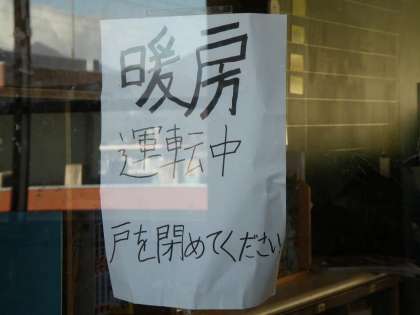 暖房
運転中
戸を閉めてください